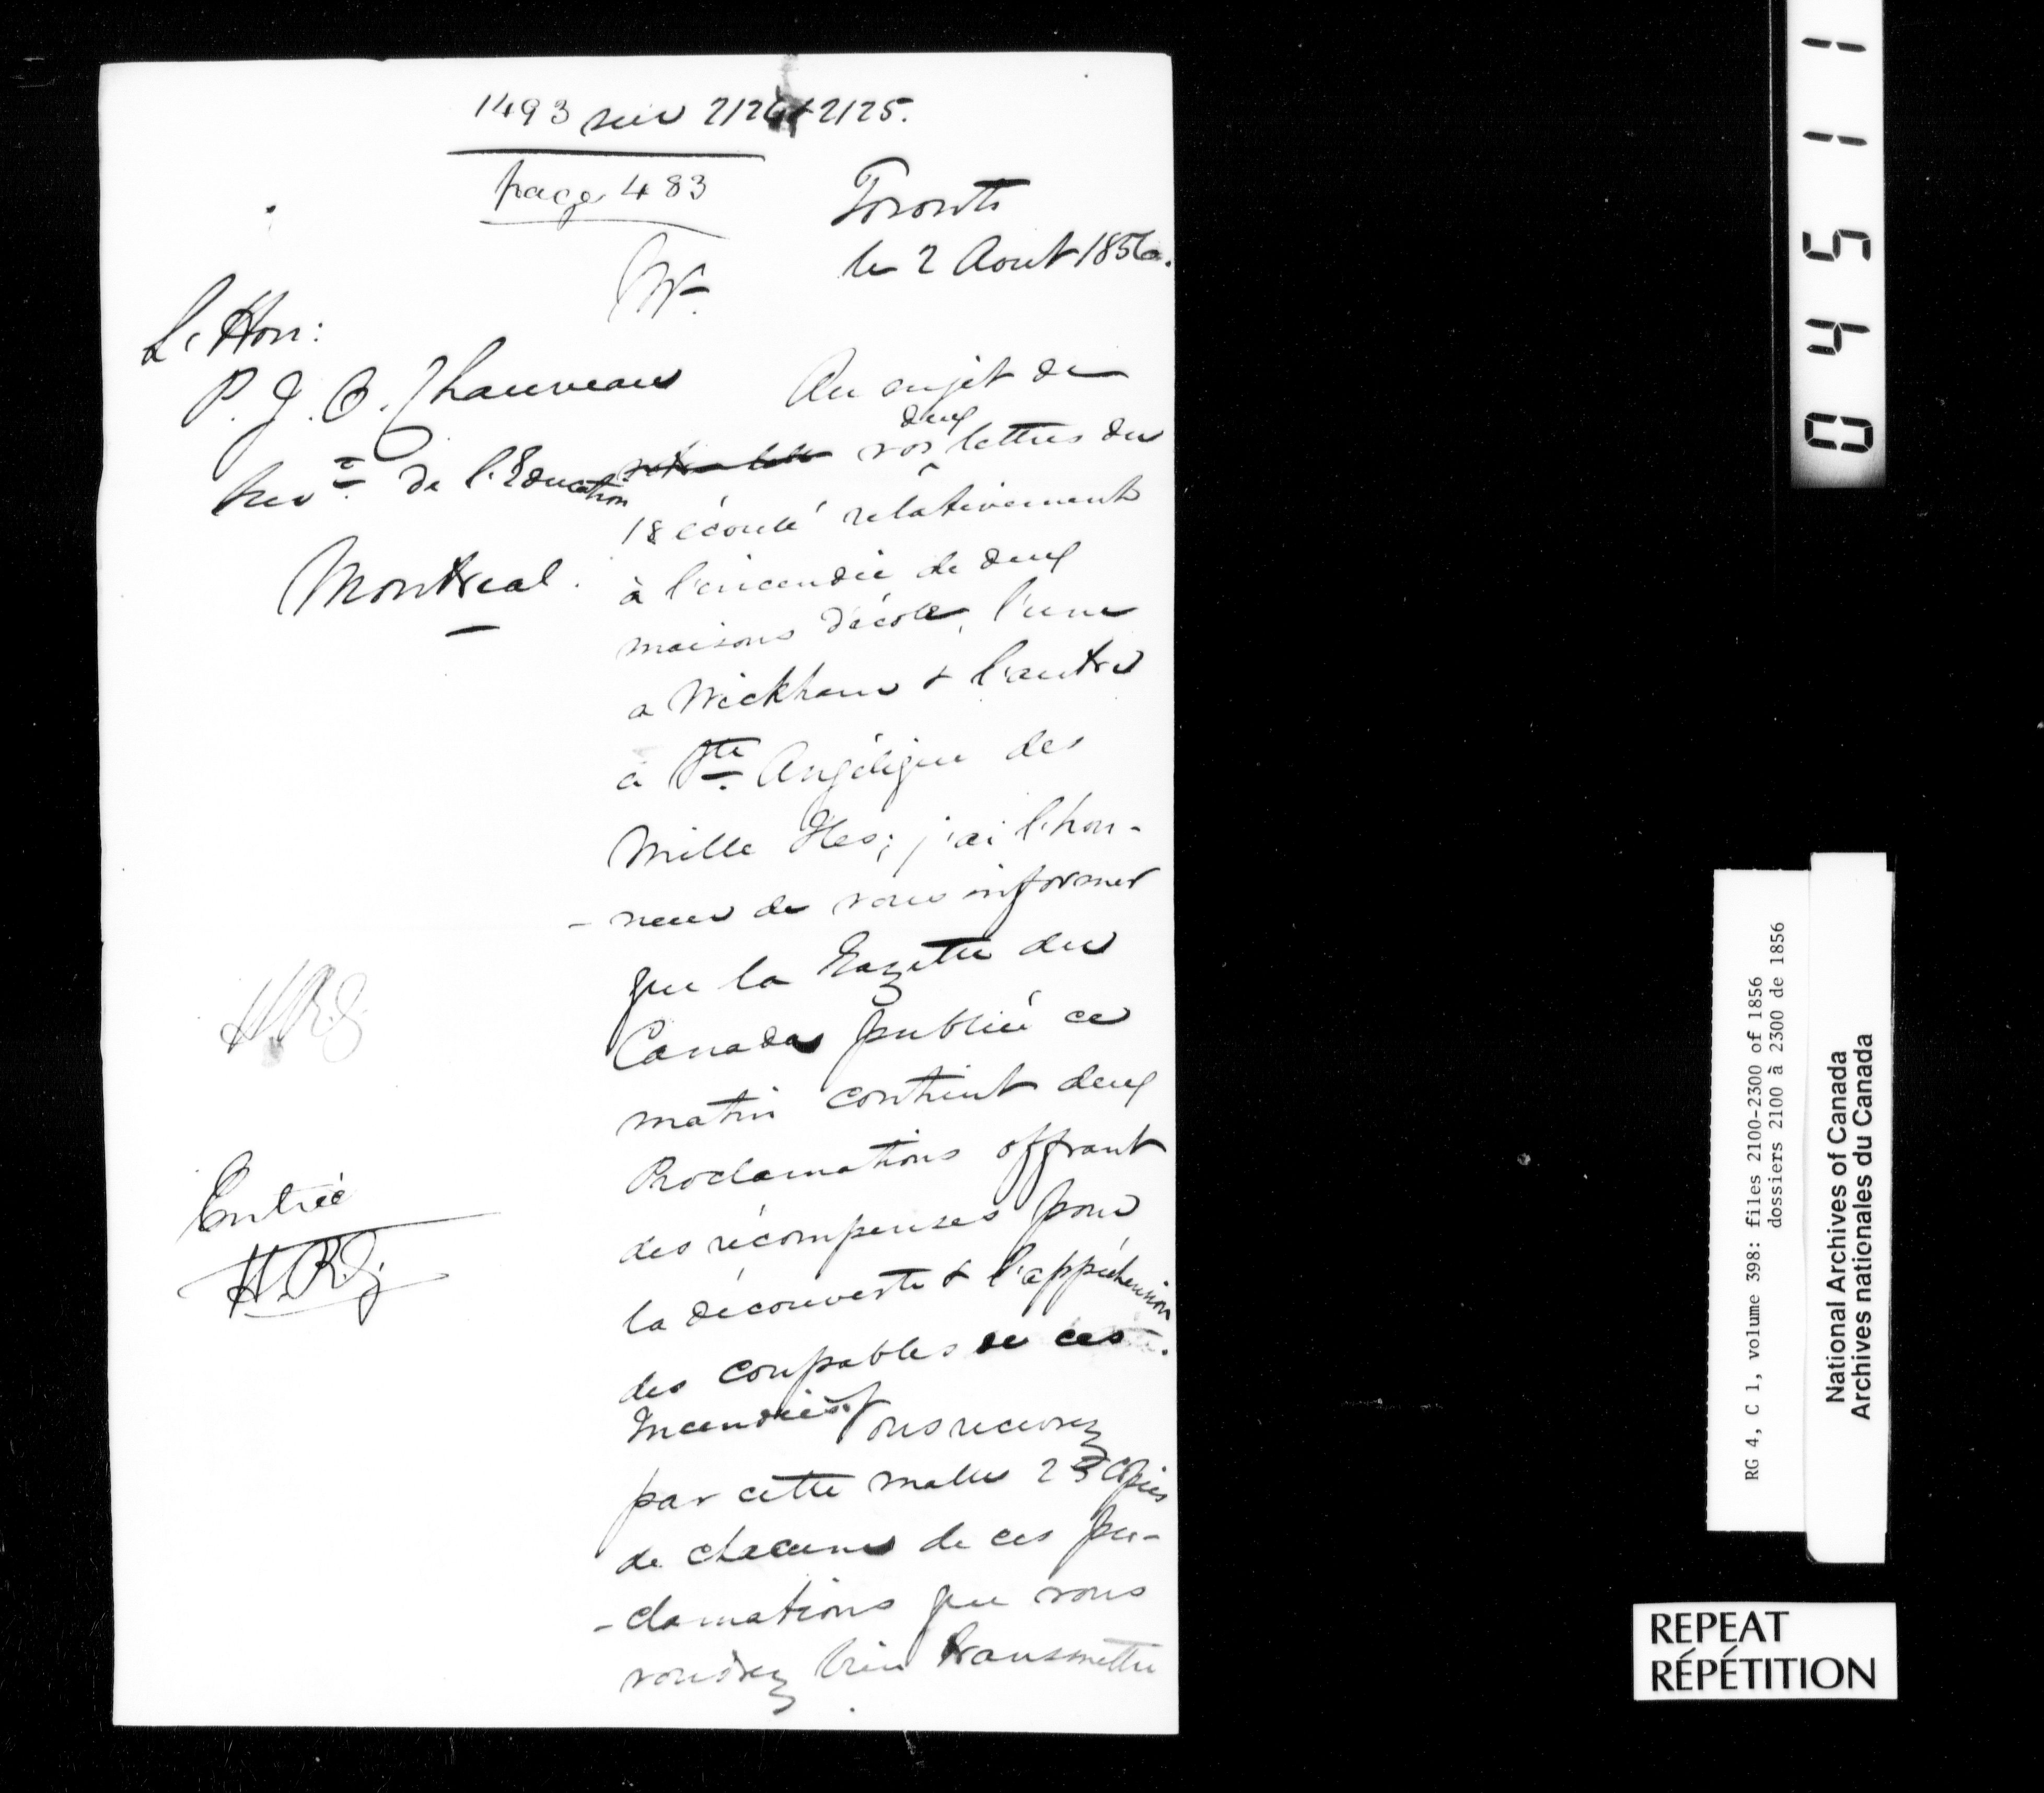 1493 sur 2124 & 2125.
page 483
Toronto
le 2 Aout 1856.
Mr.
L'Hon:
P. J. O. Chauveau
de l'Education
Montreal.
Au sujet de
vos deux lettres du
18 écoulé relativement
à l'incendie de deux
maisons d'école, l'une
a Wickham & l'autre
à Ste. Angélique des
Mille Iles; j'ai l'hon-
-neur de vous informer
que la Gazette du
Canada publiée ce
matin contient deux
Proclamations offrant
des récompenses pour
la découverte & l'appréhension
des coupables de ces
Incendies. Vous recevrez
par cette malle 23 Copies
de chacune de ces pro-
-clamations que vous
voudrez bien transmettre
Entrée
0 4 5 1 1
RG 4, C 1, volume 398: files 2100-2300 of 1856
dossiers 2100 à 2300 de 1856
National Archives of Canada
Archives nationales du Canada
REPEAT
RÉPÉTITION